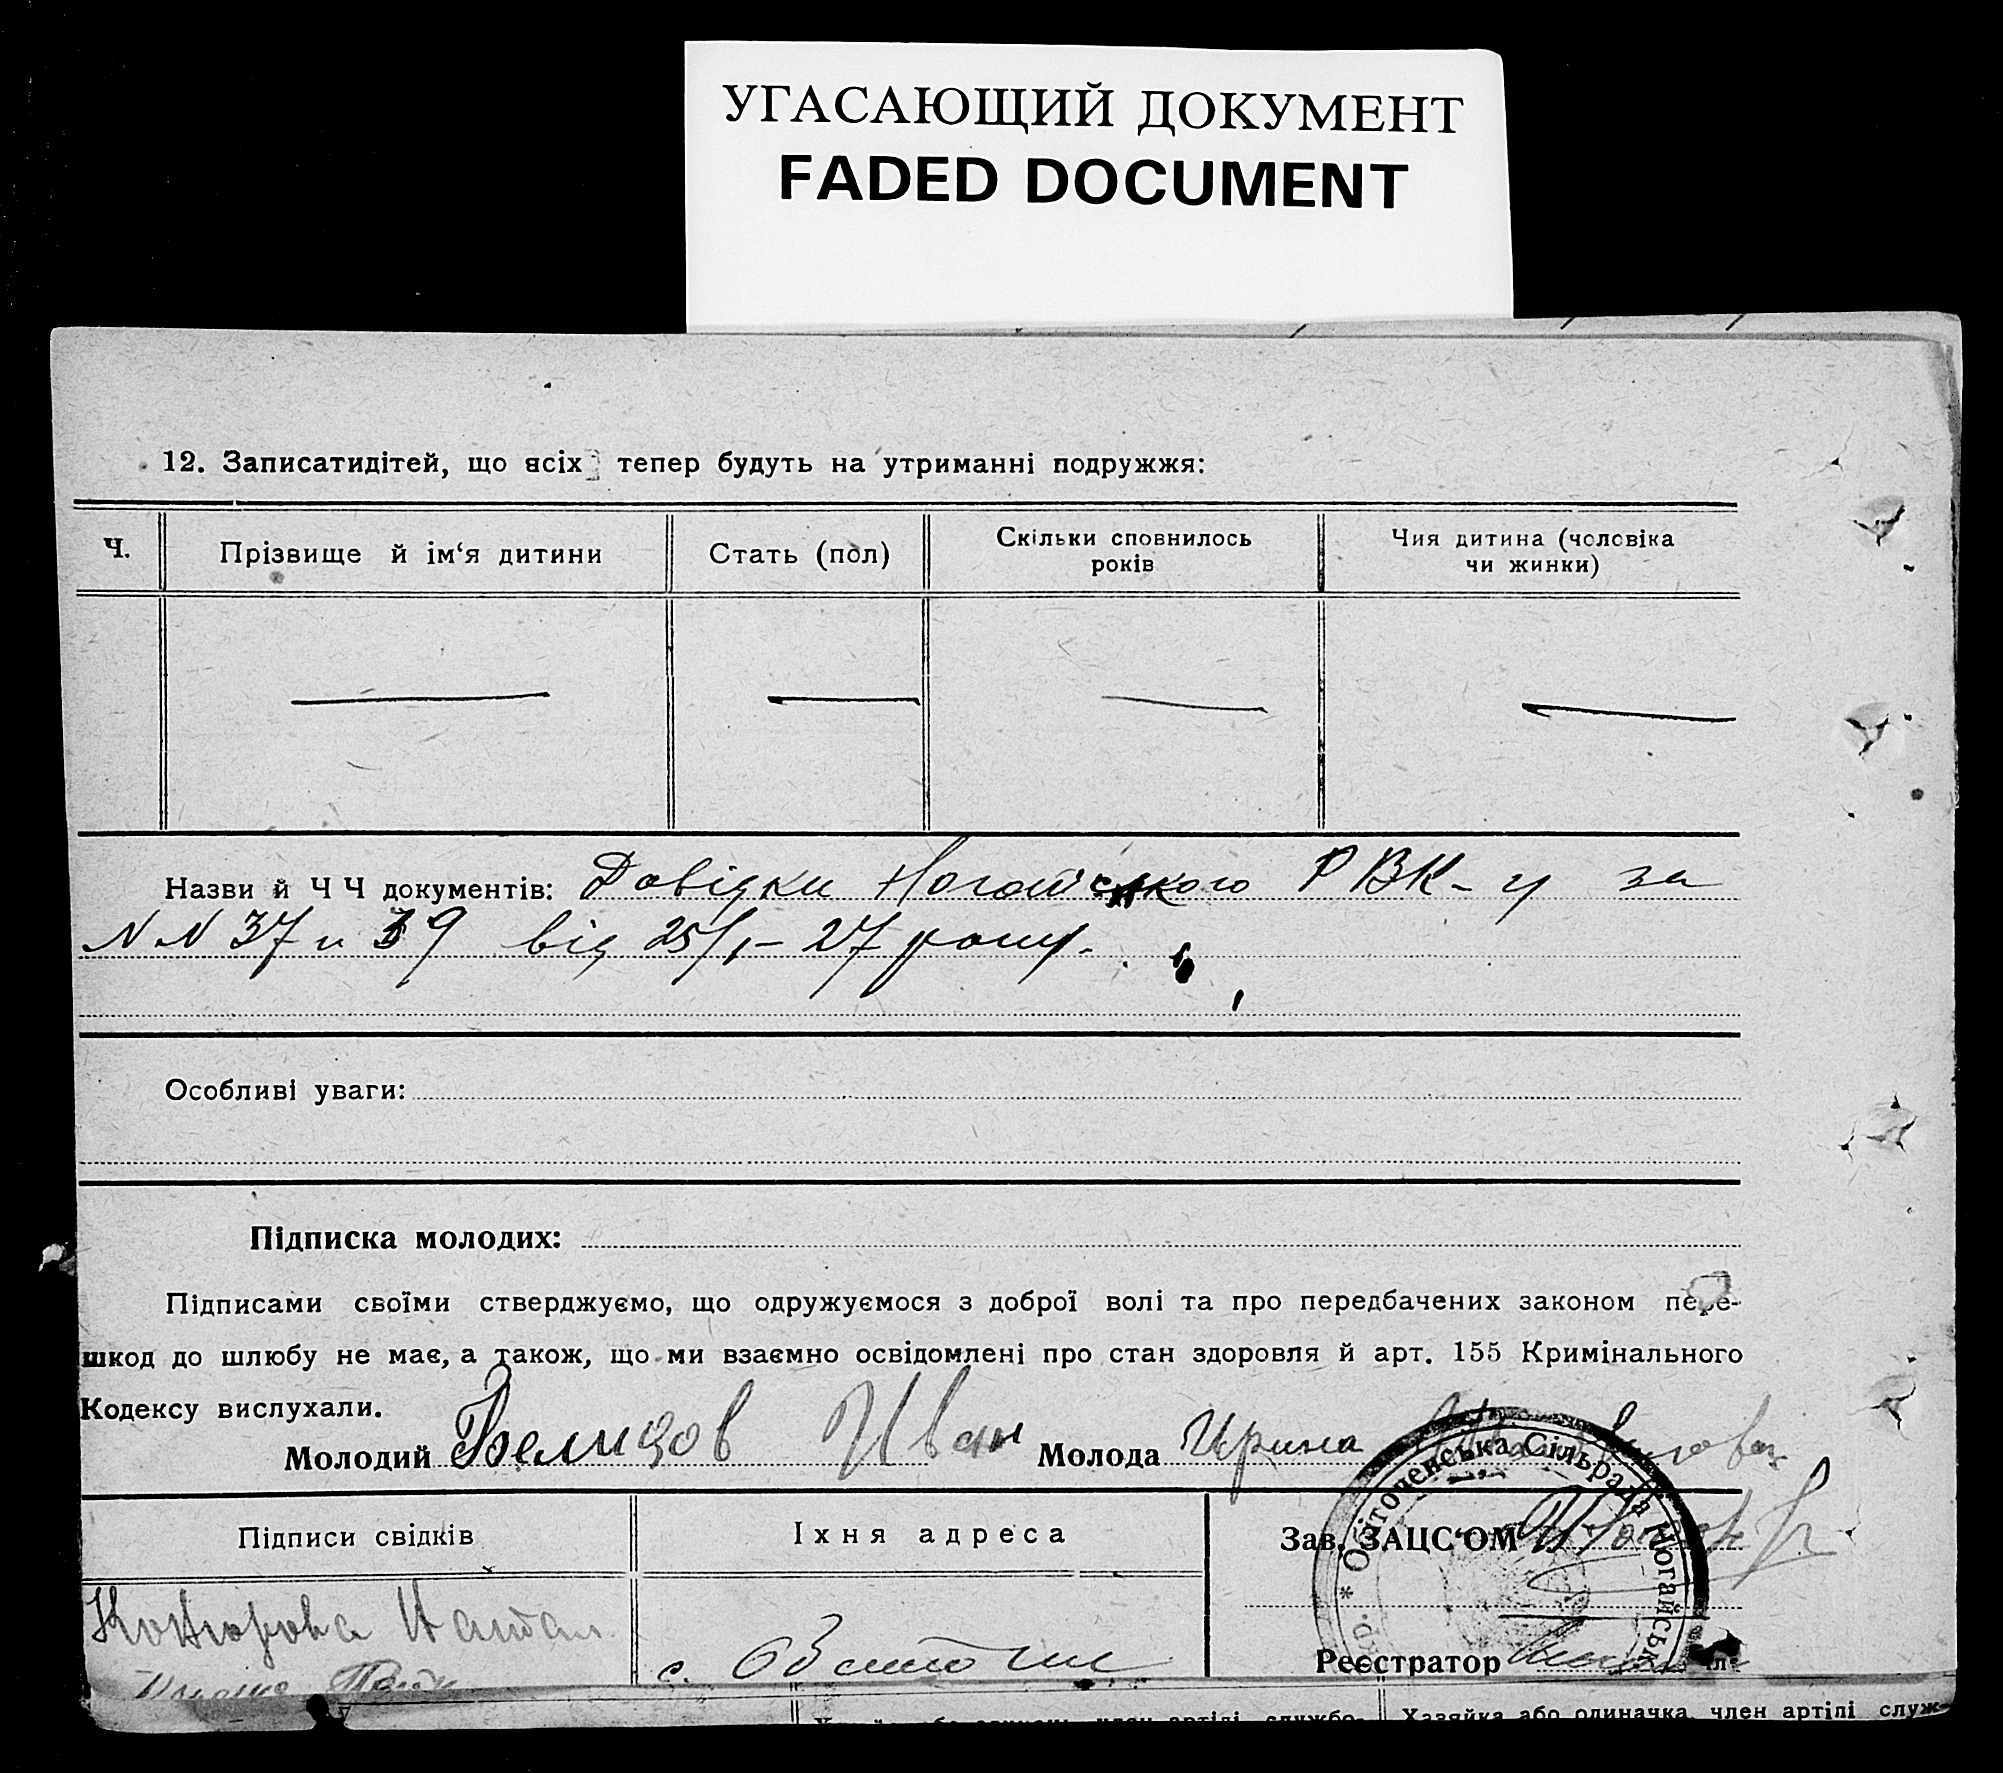 УГАСАЮЩИЙ ДОКУМЕНТ
FADED DOCUMENT
12. Записатидітей, що всіх тепер будуть на утриманні подружжя:
Ч.
Прізвище й ім‘я дитини
Стать (пол)
Скільки сповнилось
років
Чия дитина (чоловіка
чи жинки)
Назви й Ч Ч документів: Довідки Ногайського РВК-у за
NN 37 и 39 від 25/I-27 року.
Особливі уваги:
Підписка молодих:
Підписами своїми стверджуємо, що одружуємося з доброї волі та про передбачених законом пере-
шкод до шлюбу не має, а також, що ми взаємно освідомлені про стан здоровля й арт. 155 Кримінального
Кодексу вислухали.
Молодий Велизов Иван Молода Ирина
Підписи свідків
Їхня адреса
Зав. ЗАЦС‘ОМ
* Обіточенська Сільрада Ногайськ
с. Обиточне
Реєстратор
Хазяйка або одиначка, член артілі служ-